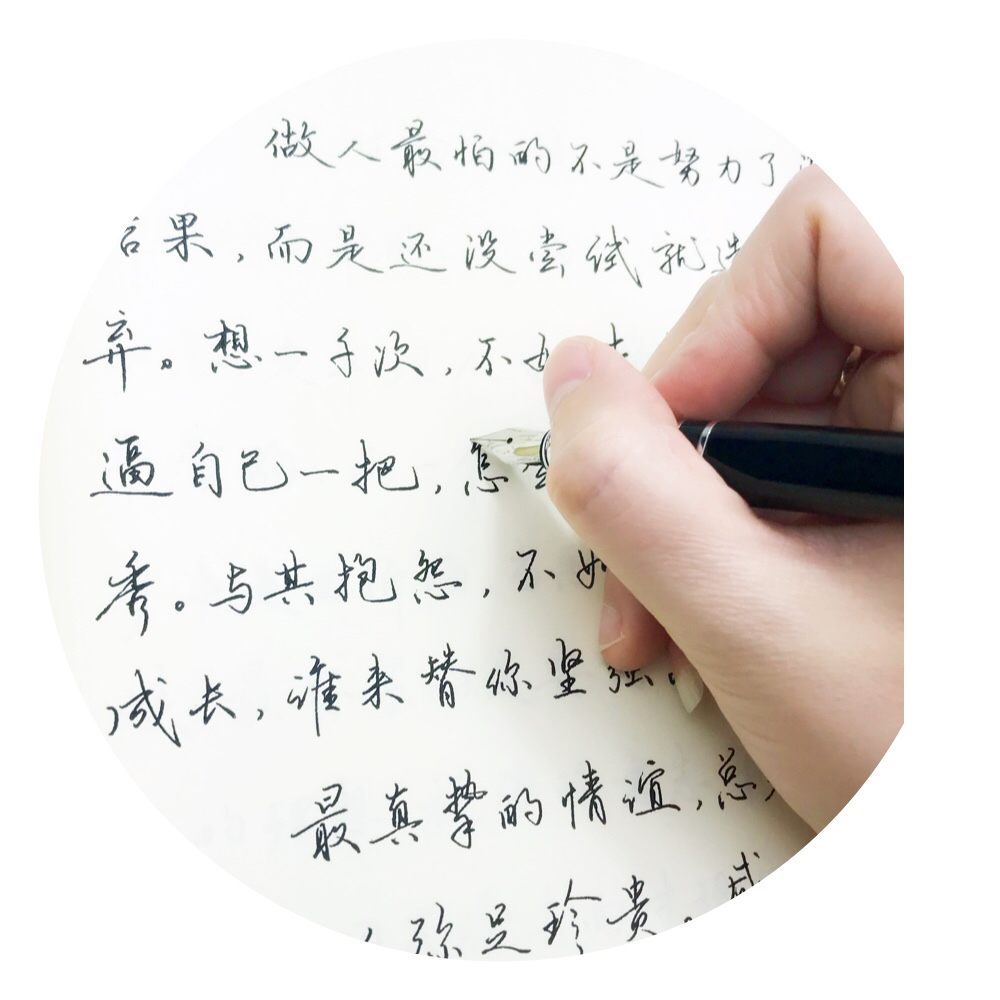 做人最怕的不是努力了
果，而是还没尝试就选
弃。想一千次，不如去
逼自己一把，怎
秀。与其抱怨，不如
成长，谁来替你坚强。
最真挚的情谊，总
弥足珍贵。感